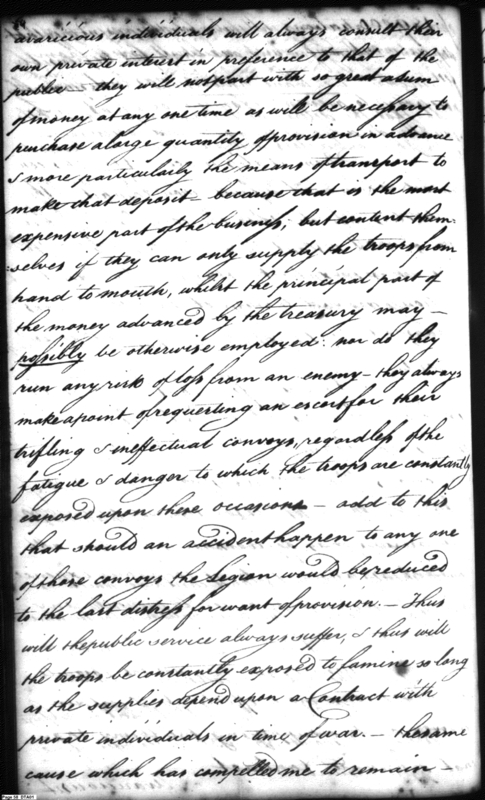 avaricious individuals will always consult their
own private interest in preference to that of the
public – they will not part with so great a sum
of money at any one time as will be necessary to
purchase a large quantity of provision in advance
& more particularly the means of transport to
make that deposit – because that is the most
expensive part of the business; but content them-
selves if they can only supply the troops from
hand to mouth, whilst the principal part of
the money advanced by the treasury may –
possibly be otherwise employed: nor do they
run any risk of loss from an enemy – they always
make a point of requesting an escort for their
trifling & ineffectual convoys, regardless of the
fatigue & danger to which the troops are constantly
exposed upon these occasions – add to this
that should an accident happen to any one
of those convoys the Legion would be reduced
to the last distress for want of provision. – Thus
will the public service always suffer, & thus will
the troops be constantly exposed to famine so long
as the supplies depend upon a Contract with
private individuals in time of war. – the same
cause which has compelled me to remain –